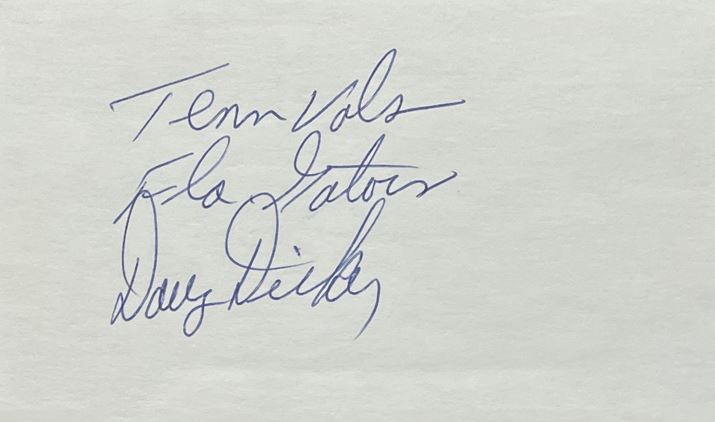 Tenn Vols
Fla Gators
Doug Dickey